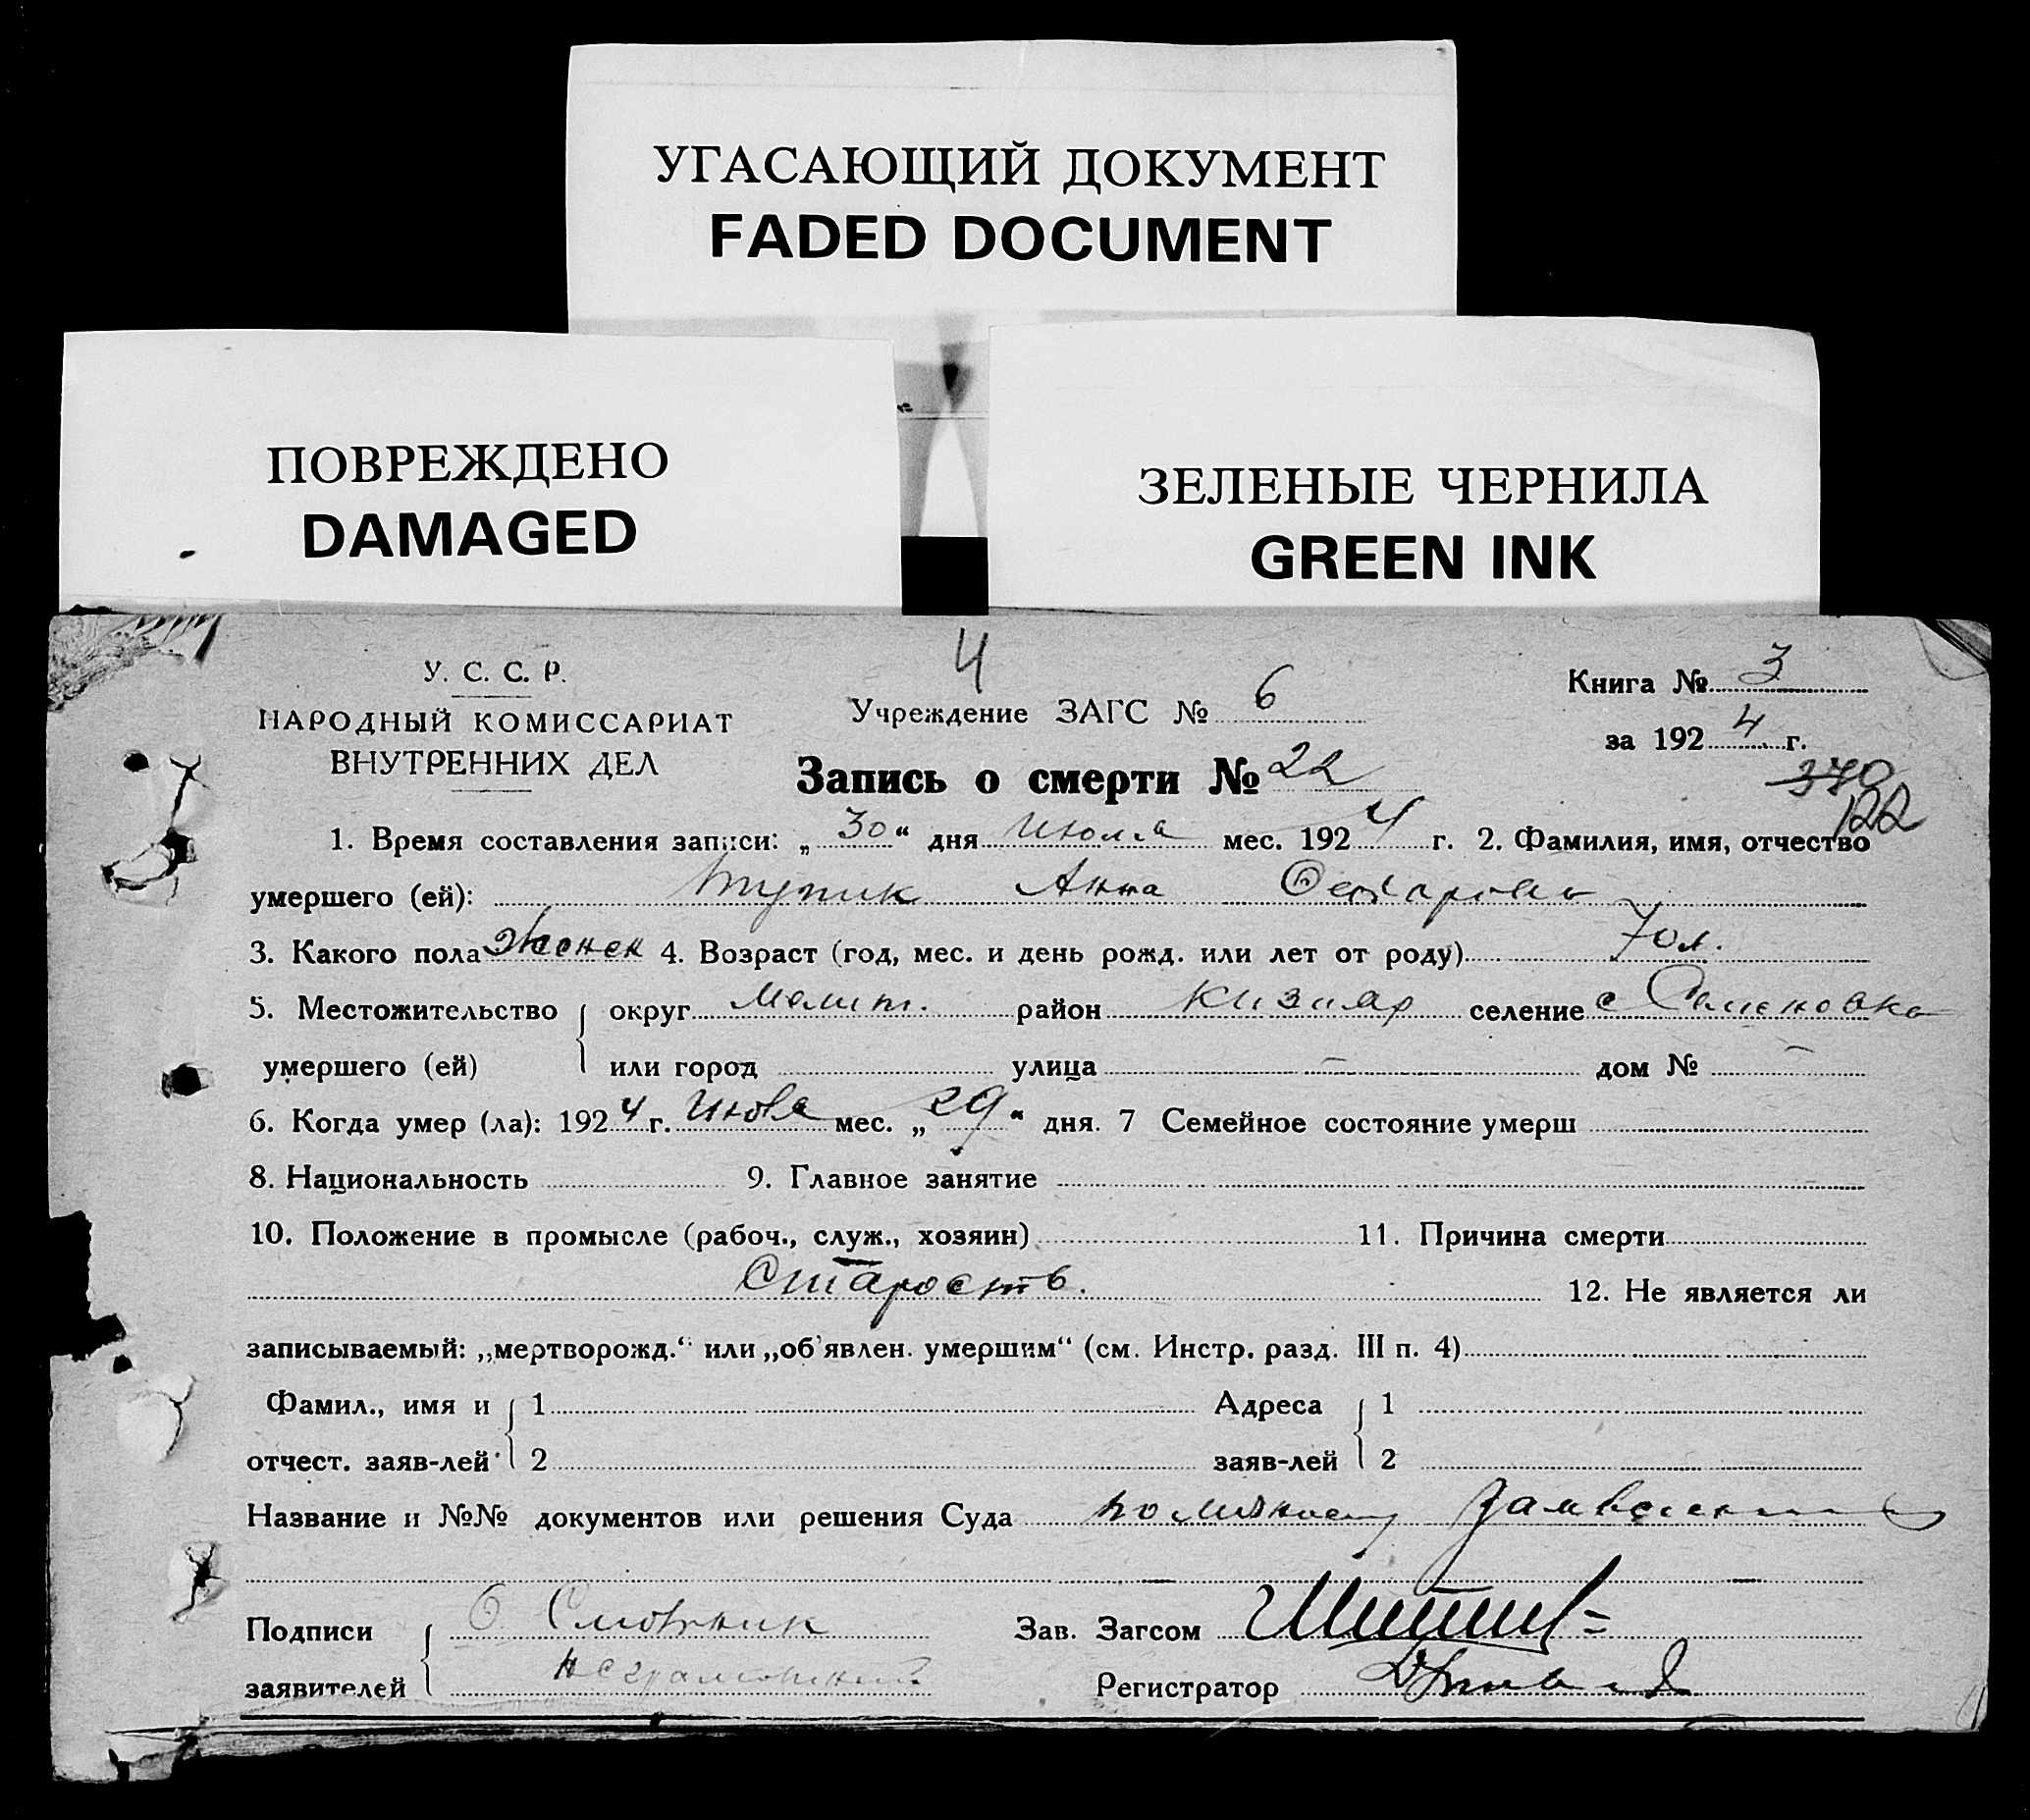 УГАСАЮЩИЙ ДОКУМЕНТ
FADED DOCUMENT
ПОВРЕЖДЕНО
DAMAGED
ЗЕЛЕНЫЕ ЧЕРНИЛА
GREEN INK
4
У. С. С. Р.
НАРОДНЫЙ КОМИССАРИАТ
ВНУТРЕННИХ ДЕЛ
Учреждение ЗАГС № 6
Книга № 3
за 1924 г.
Запись о смерти № 22
379
122
1. Время составления записи: „30“ дня Июля мес. 1924 г. 2. Фамилия, имя, отчество
умершего (ей): Анна
3. Какого пола Женск 4. Возраст (год, мес. и день рожд. или лет от роду) 70 л.
5. Местожительство округ Мелит. район Кизияр селение с Семеновка
умершего (ей) или город улица — дом № —
6. Когда умер (ла): 1924 г. Июля мес. „29“ дня. 7 Семейное состояние умерш
8. Национальность 9. Главное занятие
10. Положение в промысле (рабоч., служ., хозяин) 11. Причина смерти
Старость. 12. Не является ли
записываемый: „мертворожд.“ или „об'явлен. умершим“ (см. Инстр. разд. III п. 4)
Фамил., имя и 1 Адреса 1
отчест. заяв-лей 2 заяв-лей 2
Название и №№ документов или решения Суда по личному
Подписи Зав. Загсом
заявителей неграмотный Регистратор